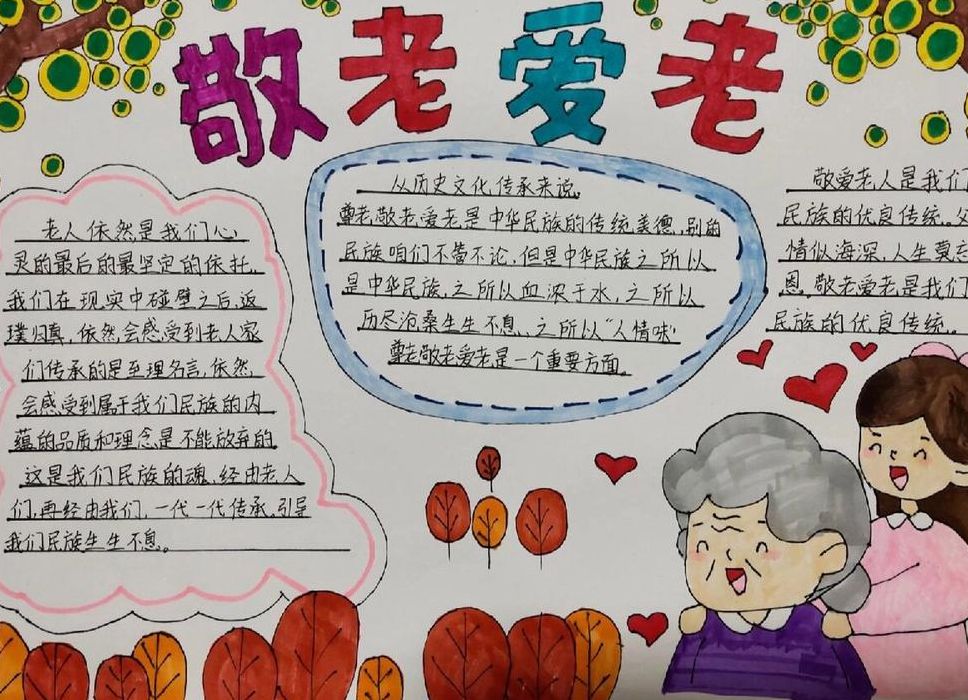 敬老爱老
老人依然是我们心
灵的最后的最坚定的依托,
我们在现实中碰壁之后,返
璞归真,依然会感受到老人家
们传承的是至理名言,依然,
会感受到属于我们民族的内
蕴的品质和理念是不能放弃的
这是我们民族的魂、经由老人
们,再经由我们,一代一代传承,引导
我们民族生生不息。
从历史文化,传承来说,
尊老,敬老,爱老是中华民族的传统美德,别的
民族咱们不管不论,但是中华民族之所以
是中华民族,之所以血浓于水,之所以
历尽沧桑生生不息、之所以“人情味”
尊老敬老爱老是一个重要方面。
敬爱老人是我们
民族的优良传统。父
情似海深,人生莫忘
恩,敬老爱老是我们
民族的优良传统。